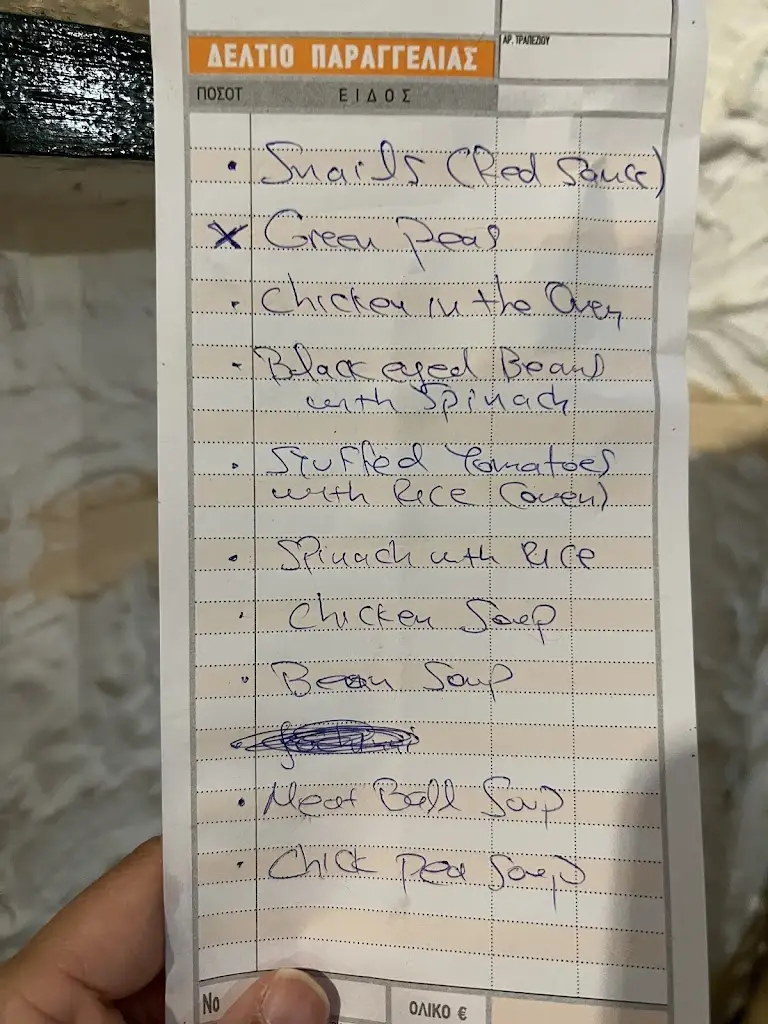 ΔΕΛΤΙΟ ΠΑΡΑΓΓΕΛΙΑΣ
ΑΡ. ΤΡΑΠΕΖΙΟΥ
ΠΟΣΟΤ ΕΙΔΟΣ
• Snails (Red Sauce)
x Green peas
• Chicken in the Oven
• Black eyed Beans
with Spinach
• Stuffed Tomatoes
with Rice (oven)
• Spinach with Rice
• Chicken Soup
• Bean Soup
• Meat Ball Soup
• Chick pea Soup
No ΟΛΙΚΟ €